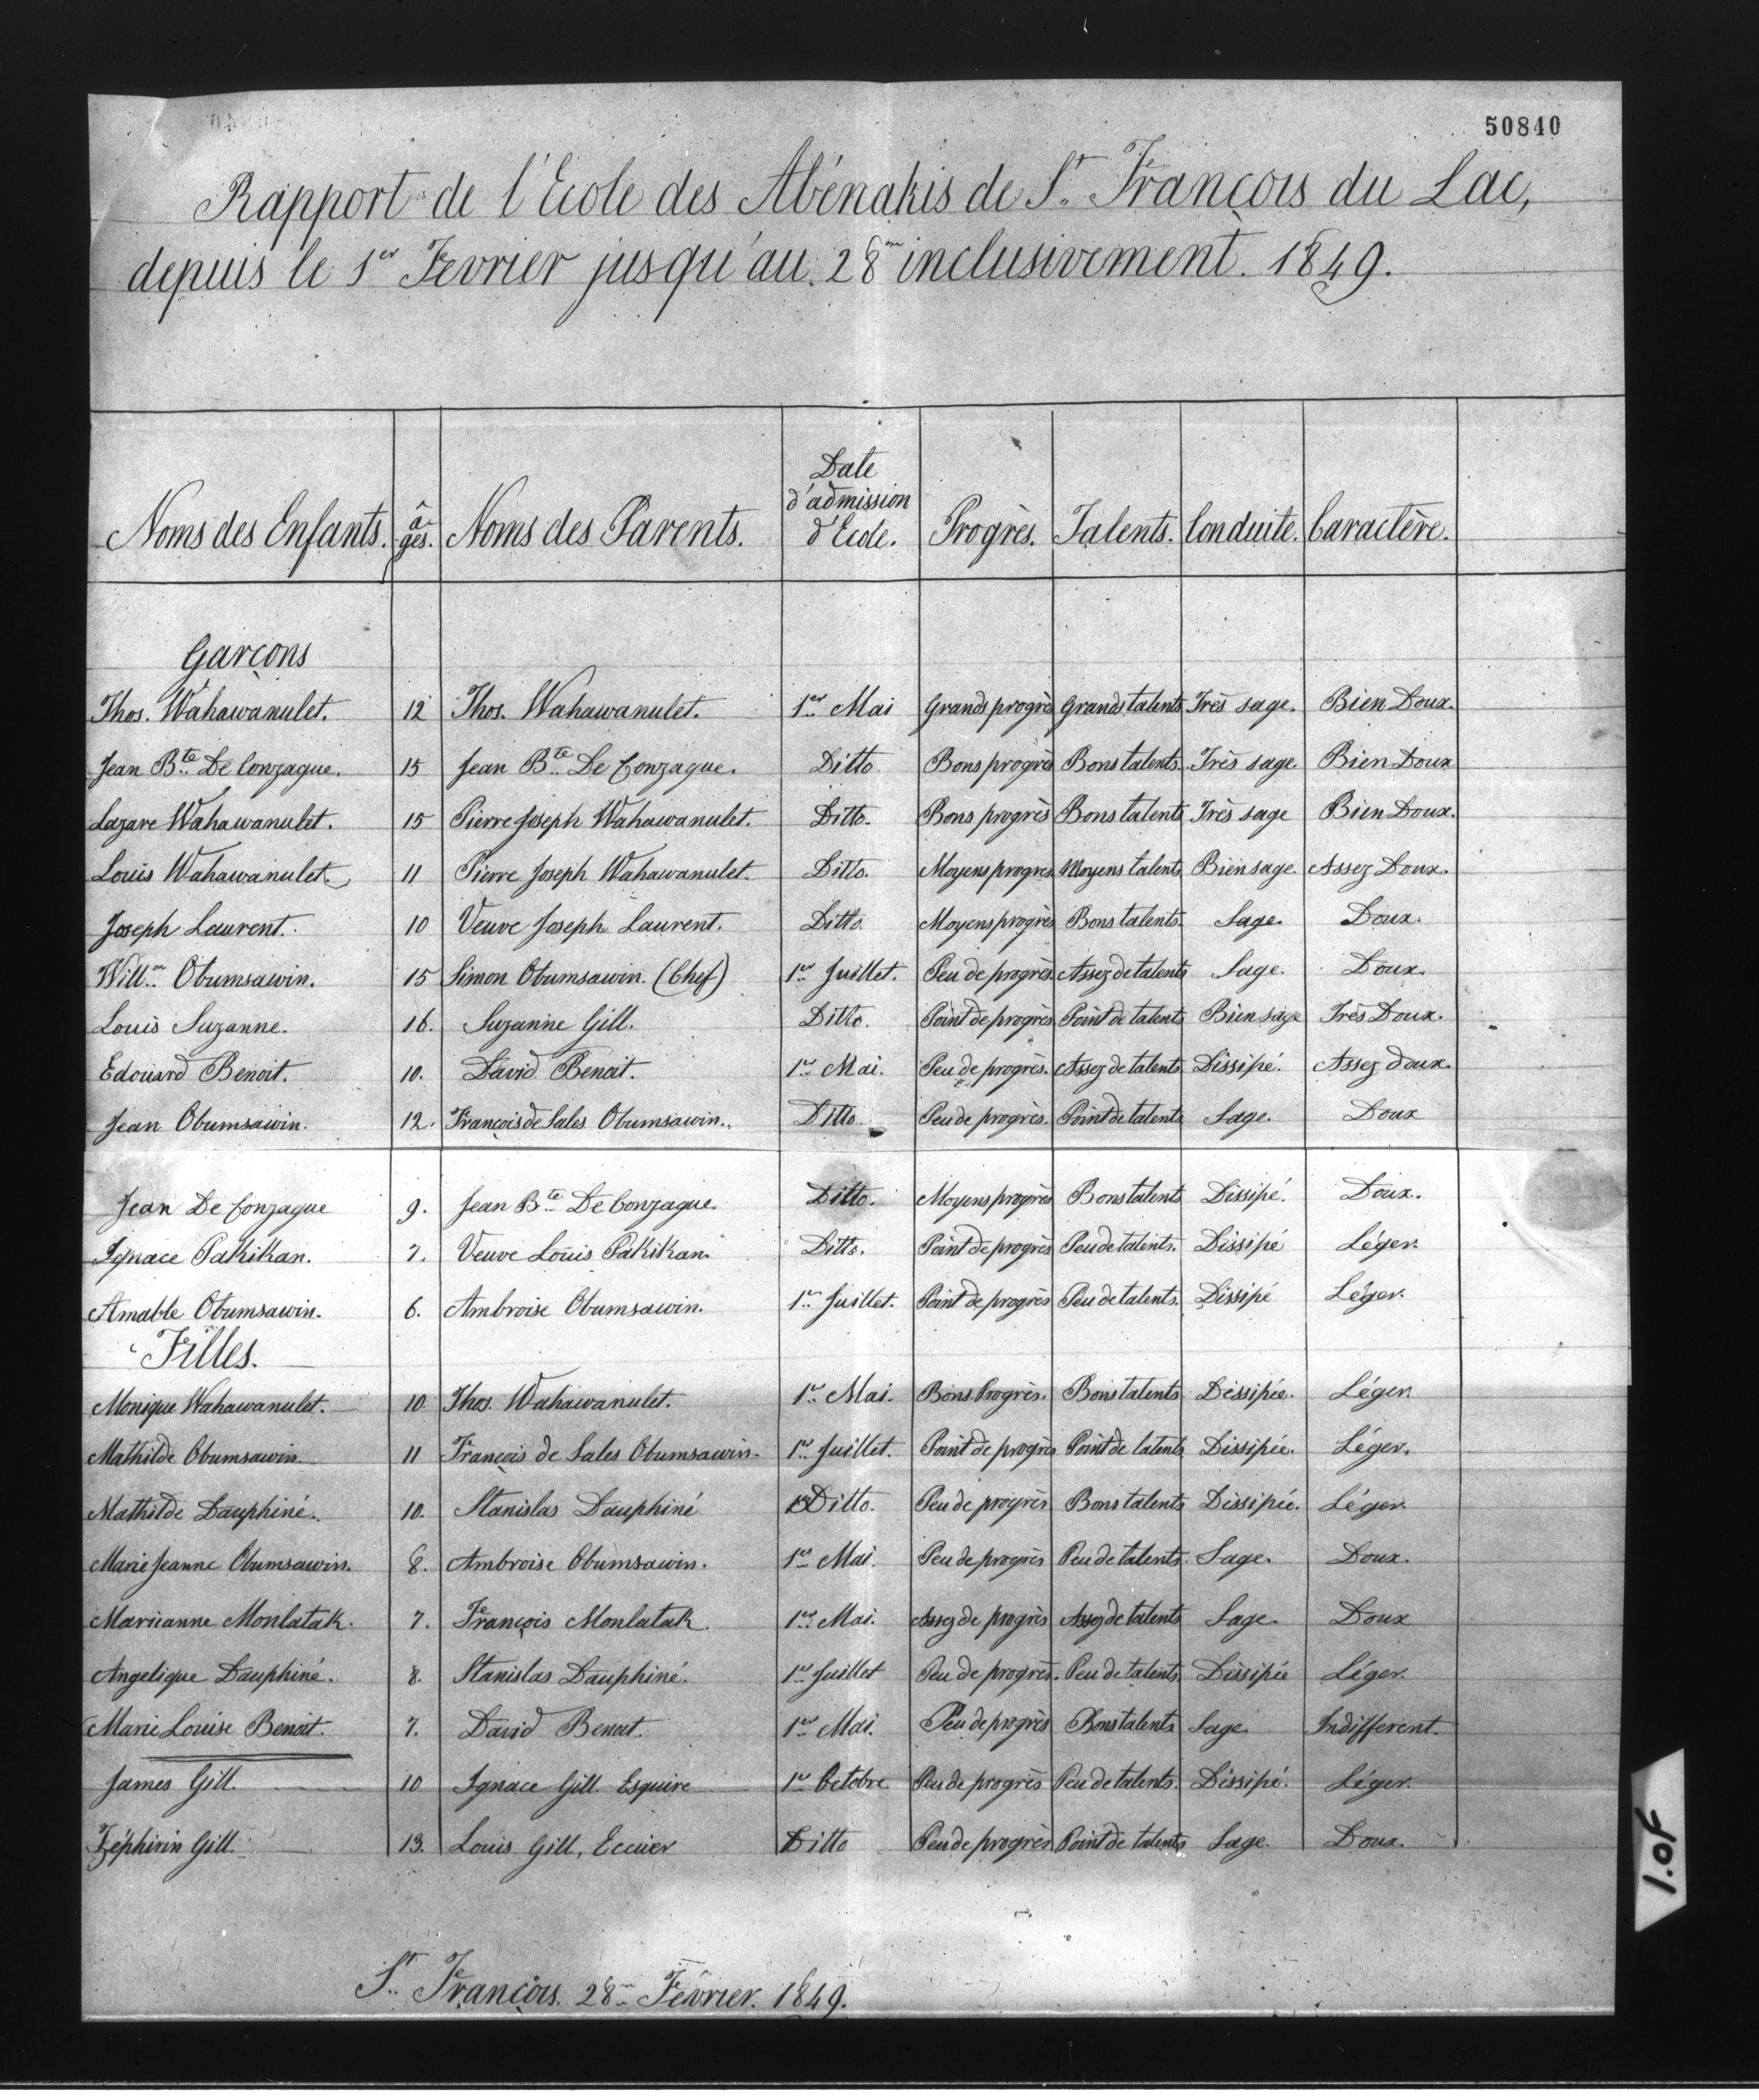 50840
Rapport de l'Ecole des Abénakis de St. François du Lac,
depuis le 1er Fevrier jusqu'au 28me inclusivement. 1849.
Noms des Enfants. âges. Noms des Parents. Date d'admission d'Ecole. Progrès. Talents. Conduite. Caractère.
Garçons
Thos. Wahawanulet. 12 Thos. Wahawanulet. 1er Mai Grands progrès Grands talents Très sage. Bien Doux.
Jean Bte. De Gonzague. 15 Jean Bte. De Gonzague. Ditto Bons progrès Bons talents. Très sage Bien Doux
Lazare Wahawanulet. 15 Pierre Joseph Wahawanulet. Ditto. Bons progrès Bons talents Très sage Bien Doux.
Louis Wahawanulet. 11 Pierre Joseph Wahawanulet. Ditto. Moyens progrès Moyens talents Bien sage. Assez Doux.
Joseph Laurent. 10 Veuve Joseph Laurent. Ditto. Moyens progrès Bons talents. Sage. Doux.
Willm. Obumsawin. 15 Simon Obumsawin. (Chef) 1er Juillet. Peu de progrès. Assez de talents Sage. Doux.
Louis Suzanne. 16. Suzanne Gill. Ditto. Point de progrès Point de talents Bien sage Très Doux.
Edouard Benoit. 10. David Benoit. 1er Mai. Peu de progrès. Assez de talents Dissipé. Assez doux.
Jean Obumsawin. 12. François de Sales Obumsawin. Ditto. Peu de progrès. Point de talents Sage. Doux
Jean De Gonzague 9. Jean Bte. De Gonzague. Ditto. Moyens progrès Bons talents Dissipé. Doux.
Ignace Pakikan. 7. Veuve Louis Pakikan. Ditto. Point de progrès Peu de talents. Dissipé Léger.
Amable Obumsawin. 6. Ambroise Obumsawin. 1er Juillet. Point de progrès Peu de talents. Dissipé Léger.
Filles.
Monique Wahawanulet. 10. Thos. Wahawanulet. 1er Mai. Bons Progrès. Bons talents Dissipée. Léger.
Mathilde Obumsawin. 11 François de Sales Obumsawin. 1er Juillet. Point de progrès Point de talents Dissipée. Léger.
Mathilde Dauphiné. 10. Stanislas Dauphiné Ditto. Peu de progrès Bons talents Dissipée. Léger.
Marie Jeanne Obumsawin. 8. Ambroise Obumsawin. 1er Mai. Peu de progrès Peu de talents. Sage. Doux.
Mariianne Monlatak. 7. François Monlatak. 1er Mai. Assez de progrès Assez de talents Sage. Doux
Angelique Dauphiné. 8. Stanislas Dauphiné. 1er Juillet Peu de progrès. Peu de talents. Dissipée Léger.
Marie Louise Benoit. 7. David Benoit. 1er Mai. Peu de progrès Bons talents Sage. Indifferent.
James Gill. 10 Ignace Gill Esquire 1er Octobre Peu de progrès Peu de talents. Dissipé. Léger.
Zéphirin Gill. 13. Louis Gill, Ecuier Ditto Peu de progrès Point de talents Sage. Doux.
St. François. 28me Février. 1849.
1.of